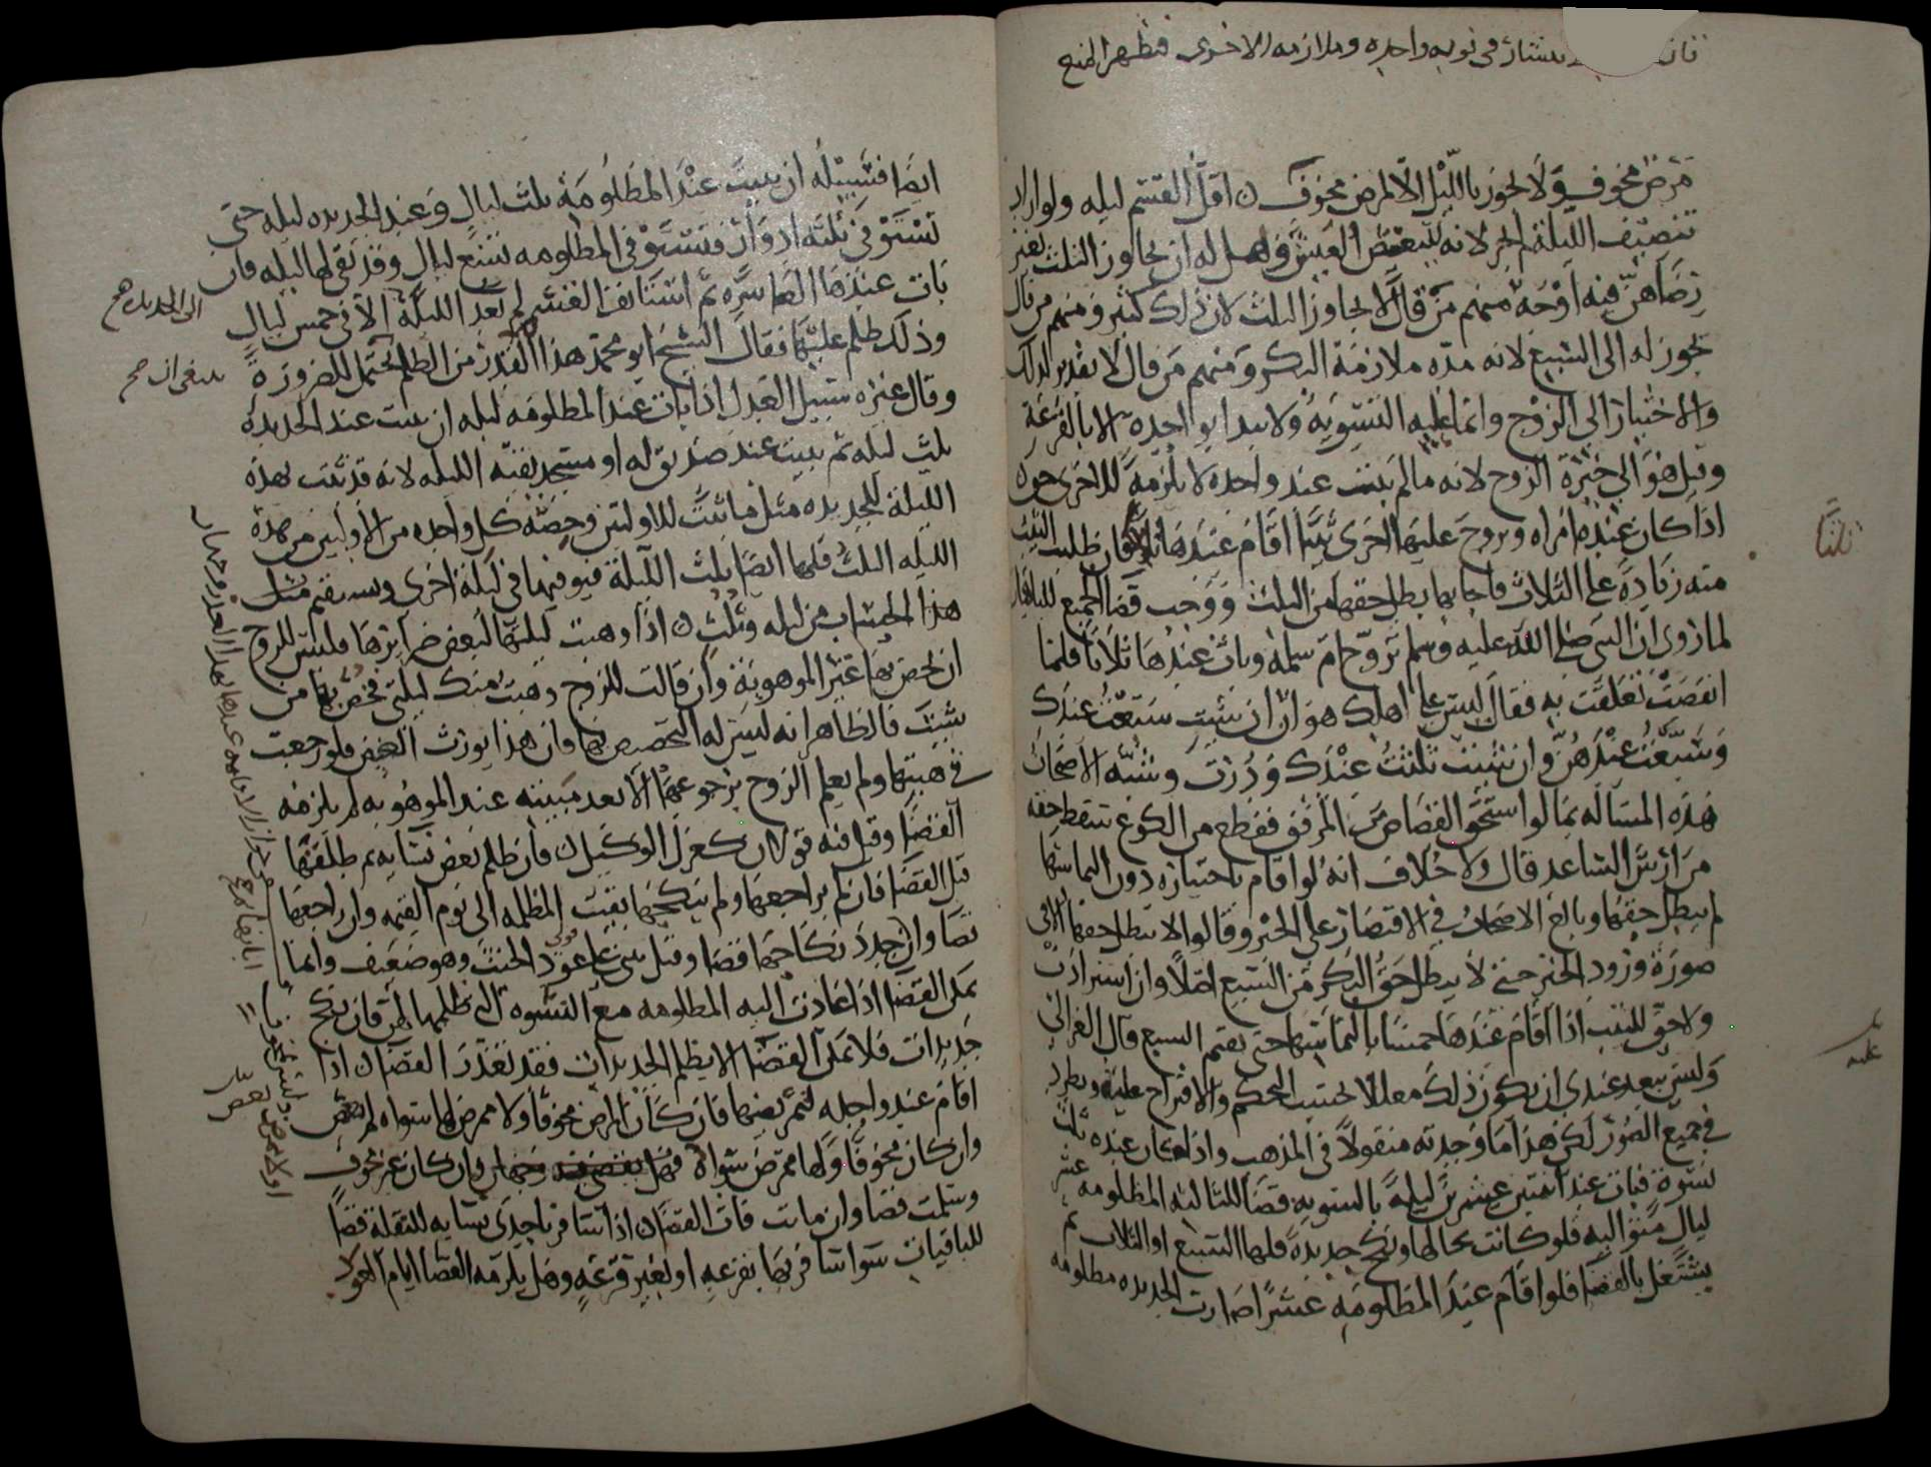 نشاز في نوبه واحده وملازمه الاخرى فيظهر المنع
مرض مخوف ولا يجوز بالليل الا لمرض مخوف ن اقل القسم ليله ولو اراد
تنصيف الليلة لم يجز لانه يبغض العيش وهل له ان يجاوز الثلث بغير
رضاهن فيه اوجه منهم من قال لا يجاوز الثلث لان ذلك كثير ومنهم من قال
يجوز له الى السبع لانه مده ملازمة البكر ومنهم من قال لا تقدير لذلك
والاختيار الى الزوج وانما عليه التسويه ولا يبدا بواحده الا بالقرعة
وقيل هو الى خيرة الزوج لانه ما لم يبت عند واحده لا يلزمه للاخرى حق ه
اذا كان عنده امراه وتزوج عليها اخرى ثيبا اقام عندها ثلاثا فان طلبت الثيب
منه زيادة على الثلاث فاجابها بطل حقها من الثلث ووجب قضا الجميع للباقيات
لما روى ان النبي صلى الله عليه وسلم تزوج ام سلمه وبات عندها ثلاثا فلما
انقضت تعلقت به فقال ليس بك على اهلك هوان ان شيت سبعت عندك
وسبعت عندهن وان شيت ثلثت عندك ودرت وشبه الاصحاب
هذه المساله بما لو استحق القصاص من المرفق فقطع من الكوع سقط حقه
من ارش الساعد قال ولا خلاف انه لو اقام باختياره دون التماسها
لم يبطل حقها وبالغ الاصحاب في الاقتصار على الخبر وقالوا لا يبطل حقها الا في
صورة ورود الخبر حتى لا يبطل حق البكر من السبع اصلا وان استزادت
ولا حق الثيب اذا اقام عندها خمسا بالتماسها حتى تقيم السبع قال الغزالي
وليس يبعد عندي ان يكون ذلك معللا بحسب التحكم والاقتراح عليه ويطرد
في جميع الصور لكن هذا ما وجدته منقولا في المذهب واذا كان عنده ثلث
نسوة فبات عند اثنتين عشرين ليلة بالسويه قضا للثالثه المظلومه عشر
ليال متواليه فلو كانت بحالها ونكح جديدة فلها السبع او الثلاث ثم
يشتغل بالقضا فلو اقام عند المظلومه عشرا صارت الجديده مظلومه
ثلثا
عليه
ايضا فسبيله ان يبيت عند المظلومة ثلث ليال وعند الجديده ليله حتى
تستوفي ثلثه ادوار فتستوفي المظلومه تسع ليال وقد بقى لها ليله فان
بات عندها العاشره ثم استانف القسم لم تعد الليلة الا في خمس ليال
وذلك ظلم عليها فقال الشيخ ابو محمد هذا القدر من الظلم يحتمل للضرورة
وقال غيره سبيل العدل اذا بات عند المظلومه ليله ان يبيت عند الجديدة
ثلث ليله ثم يبيت عند صديق له او مسجد بقيه الليله لانه قد ثبت بهذه
الليلة للجديده مثل ما ثبت للاولتين وحصة كل واحده من الاوليين من هذه
الليله الثلث فلها ايضا ثلث الليلة فيوفيها في ليلة اخرى ويستقيم مثل
هذا الحساب من ليله وثلث ن اذا وهبت ليلتها لبعض ضرايرها فليس للزوج
ان يخص بها غير الموهوبة وان قالت للزوج وهبت منك ليلتي فخص بها من
شيت فالظاهر انه ليس له التخصيص بها فان هذا يورث الغيض فلو رجعت
في هبتها ولم يعلم الزوج برجوعها الا بعد مبيته عند الموهوبه لم يلزمه
القضا وقيل فيه قولان كعزل الوكيل ن فان ظلم بعض نسايه ثم طلقها
قبل القضا فان لم يراجعها ولم ينكحها بقيت المظلمه الى يوم القيمه وان راجعها
قضا وان جدد نكاحها قضا وقيل يبنى على عود الحنث وهو ضعيف وانما
يمكن القضا اذا عادت اليه المظلومه مع النسوه التي ظلمها لهن فان نكح
جديدات فلا يمكن القضا الا بظلم الجديدات فقد تعذر القضا ن اذا
اقام عند واحده لتمريضها فان كان المرض مخوفا ولا ممرض لها سواه لم يقض
وان كان مخوفا ولها ممرض سواه فهل يقضي فيه وجهان وان كان غير مخوف
وسلمت قضا وان ماتت فات القضا ن اذا سافر باحدى نسايه للنقلة قضا
للباقيات سوا سافر بها بقرعه او بغير قرعه وهل يلزمه القضا ايام
الى الجديده صح
ينبغي ان صح